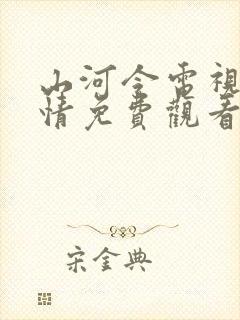 山河令電視
情免費觀看
宋金典